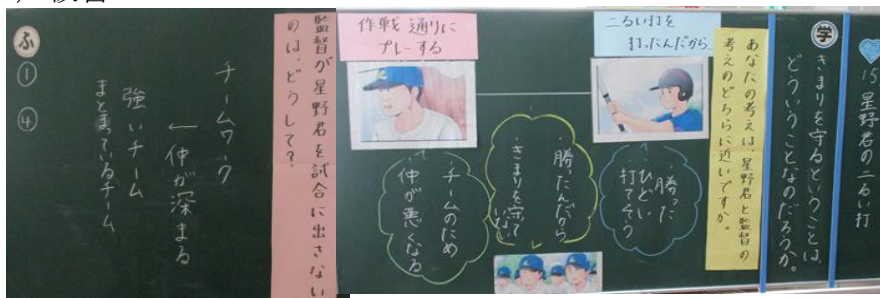 15 星野君の二るい打
学
きまりを守るということは、
どういうことなのだろうか。
あなたの考えは、星野君と監督の
考えのどちらに近いですか。
二るい打を
打ったんだから…
勝った
ひどい
打てそう
勝ったんだから
きまりを守って
いない
作戦通りに
プレーする
チームのため
仲が悪くなる
監督が星野君を試合に出さない
のは、どうして?
チームワーク
↓仲が深まる
強いチーム
まとまっているチーム
ふ
①
④